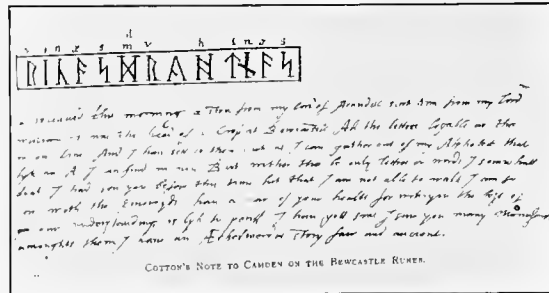 ᚱᛁᚳᚫᛋᛞᚱᚣᚻᛏᚾᚫᛋ
receaued this morning a ston from my lord of Arundel sent him from my lord
William it was the head of a Cross at Bewcastle All the letters legable ar thes
in on line And I haue sett to them such as I can gather out of my Alphabet that
lyk an A I can find in non But wither thes be only letters or words I somewhat
dout I had seen you before this time but that I am not able to walk I am so
with the of your health for without you the lyf of
our understanding is lyk to perish I haue gott som I sent you many
amonghts them I haue an story faire and ancient.
COTTON'S NOTE TO CAMDEN ON THE BEWCASTLE RUNES.